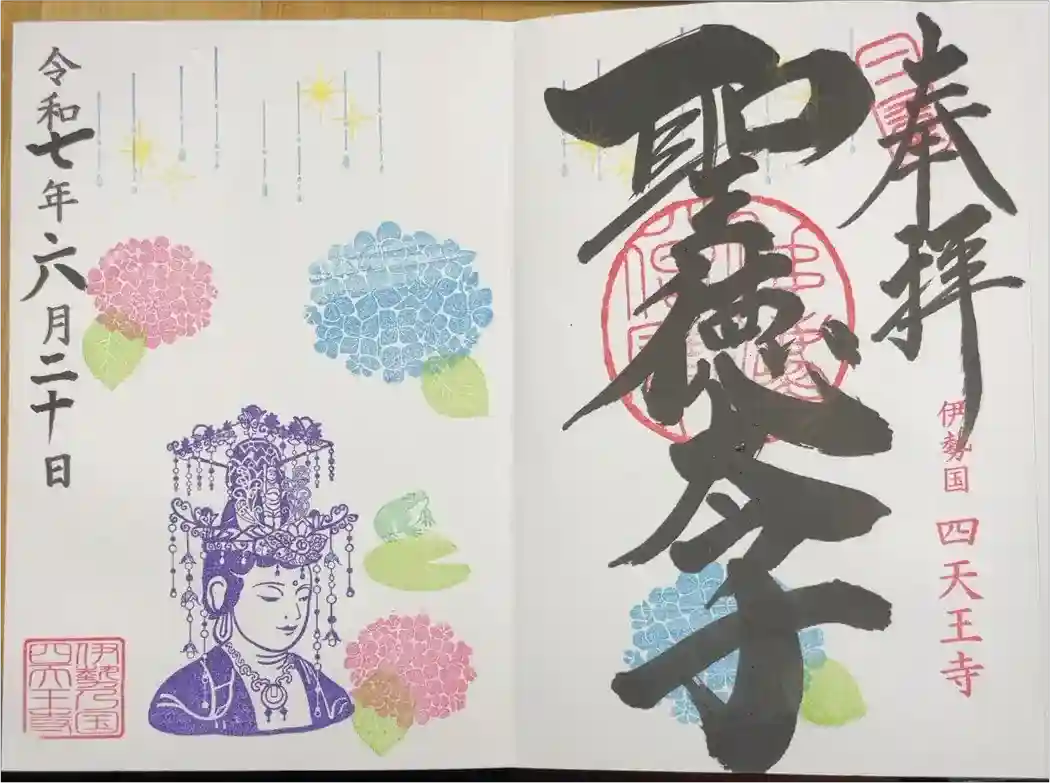 奉拝
聖徳太子
伊勢国 四天王寺
令和七年六月二十日
伊勢国
四天王寺